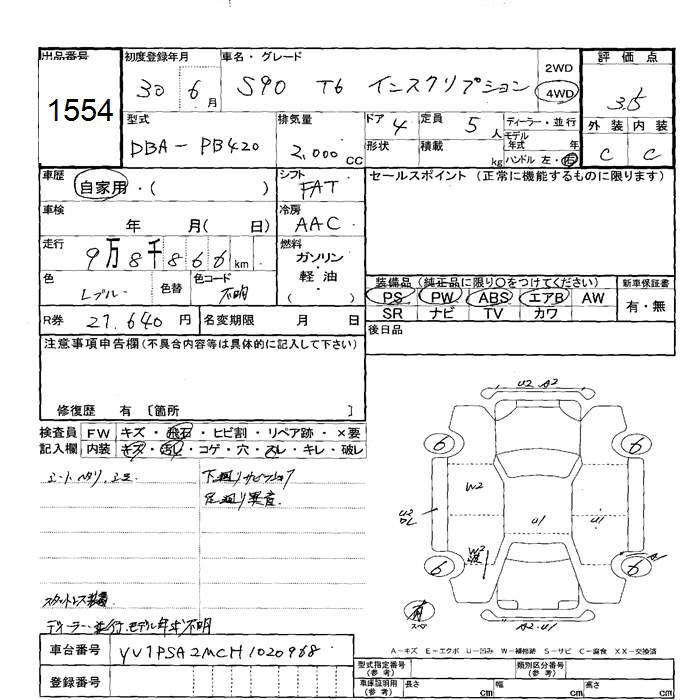 出品番号 初度登録年月 車名・グレード 評価点
1554 30 6月 S90 T6 インスクリプション 2WD 4WD 3.5
型式 排気量 ドア 定員 ディーラー・並行 外装 内装
DBA-PB420 2,000cc 4 5人 モデル年式 年 C C
形状 積載 kg ハンドル 左・右
車歴 自家用・( ) シフト FAT セールスポイント (正常に機能するものに限ります)
車検 年 月( 日) 冷房 AAC
走行 9万8千866km 燃料 ガソリン・軽油 ( )
色 Lブルー 色替 色コード 不明
装備品 (純正品に限り○をつけてください) 新車保証書
PS PW ABS エアB AW 有・無
SR ナビ TV カワ
R券 27,640円 名変期限 月 日 後日品
注意事項申告欄(不具合内容等は具体的に記入して下さい)
修復歴 有 〔箇所 〕
検査員 FW キズ・飛石・ヒビ割・リペア跡・×要
記入欄 内装 キズ・汚れ・コゲ・穴・スレ・キレ・破レ
下廻りサビ
足廻り異音
スタットレス装着
ディーラー・並行、モデル年式不明
U2 A2
6 6
W2
U2
U1 U1
W2
6 6 A
有
スペア
A2 U1
A-キズ E-エクボ U-凹み W-補修跡 S-サビ C-腐食 XX-交換済
車台番号 YV1PSA2MCH1020968
登録番号
型式指定番号(参考) 類別区分番号(参考)
車庫証明用(参考) 長さ cm 幅 cm 高さ cm